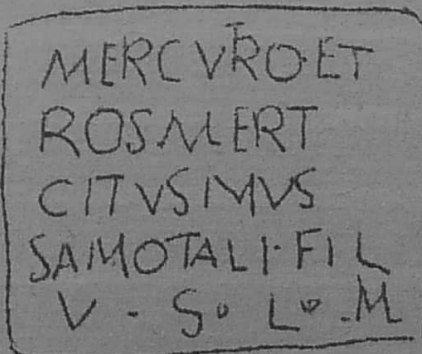 MERCVRO·ET
ROSMERT
CITVSMVS
SAMOTALI·FIL
V · S · L · M